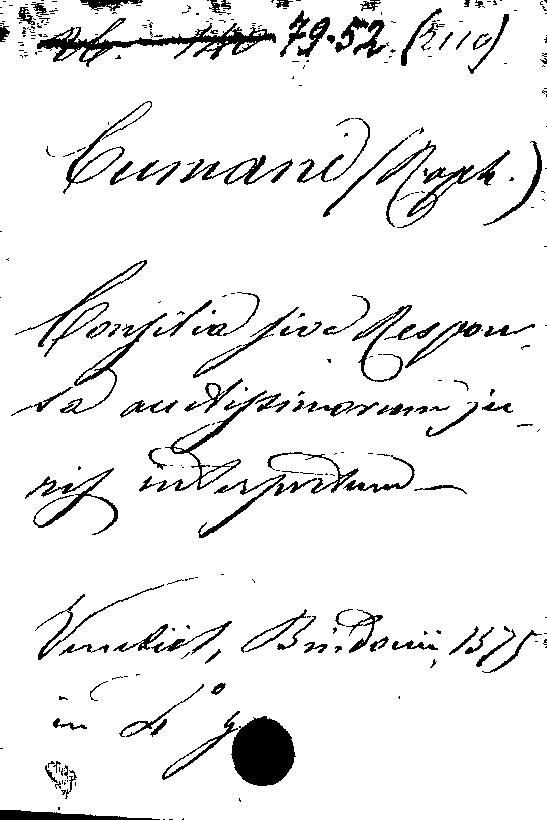 79-52. (2110)
Cumane (Raph.)
Consilia sive Respon-
sa auctissimorum ju-
ris interpretum
Venetiis, Bindonii, 1575
in 4°